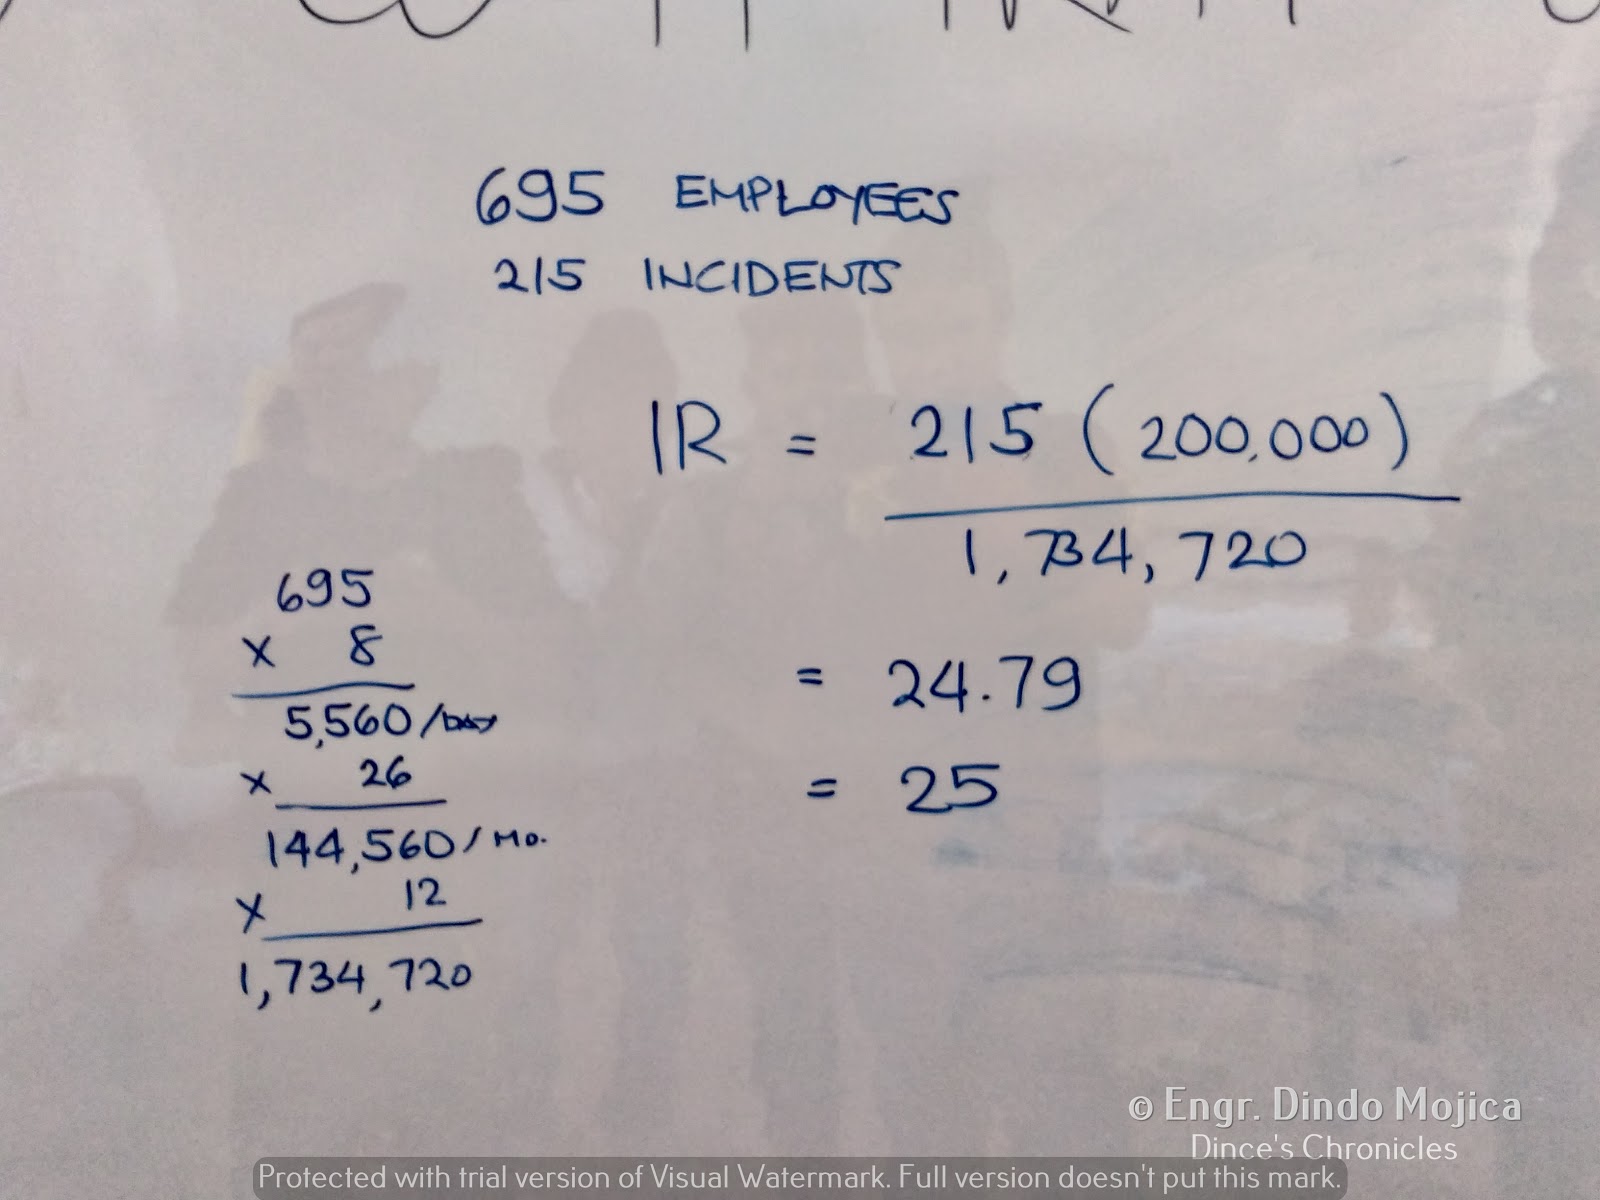 695 EMPLOYEES
215 INCIDENTS
IR = 215 (200,000)
1,734,720
= 24.79
= 25
695
x 8
5,560/DAY
x 26
144,560/MO.
x 12
1,734,720
© Engr. Dindo Mojica
Dince's Chronicles
Protected with trial version of Visual Watermark. Full version doesn't put this mark.